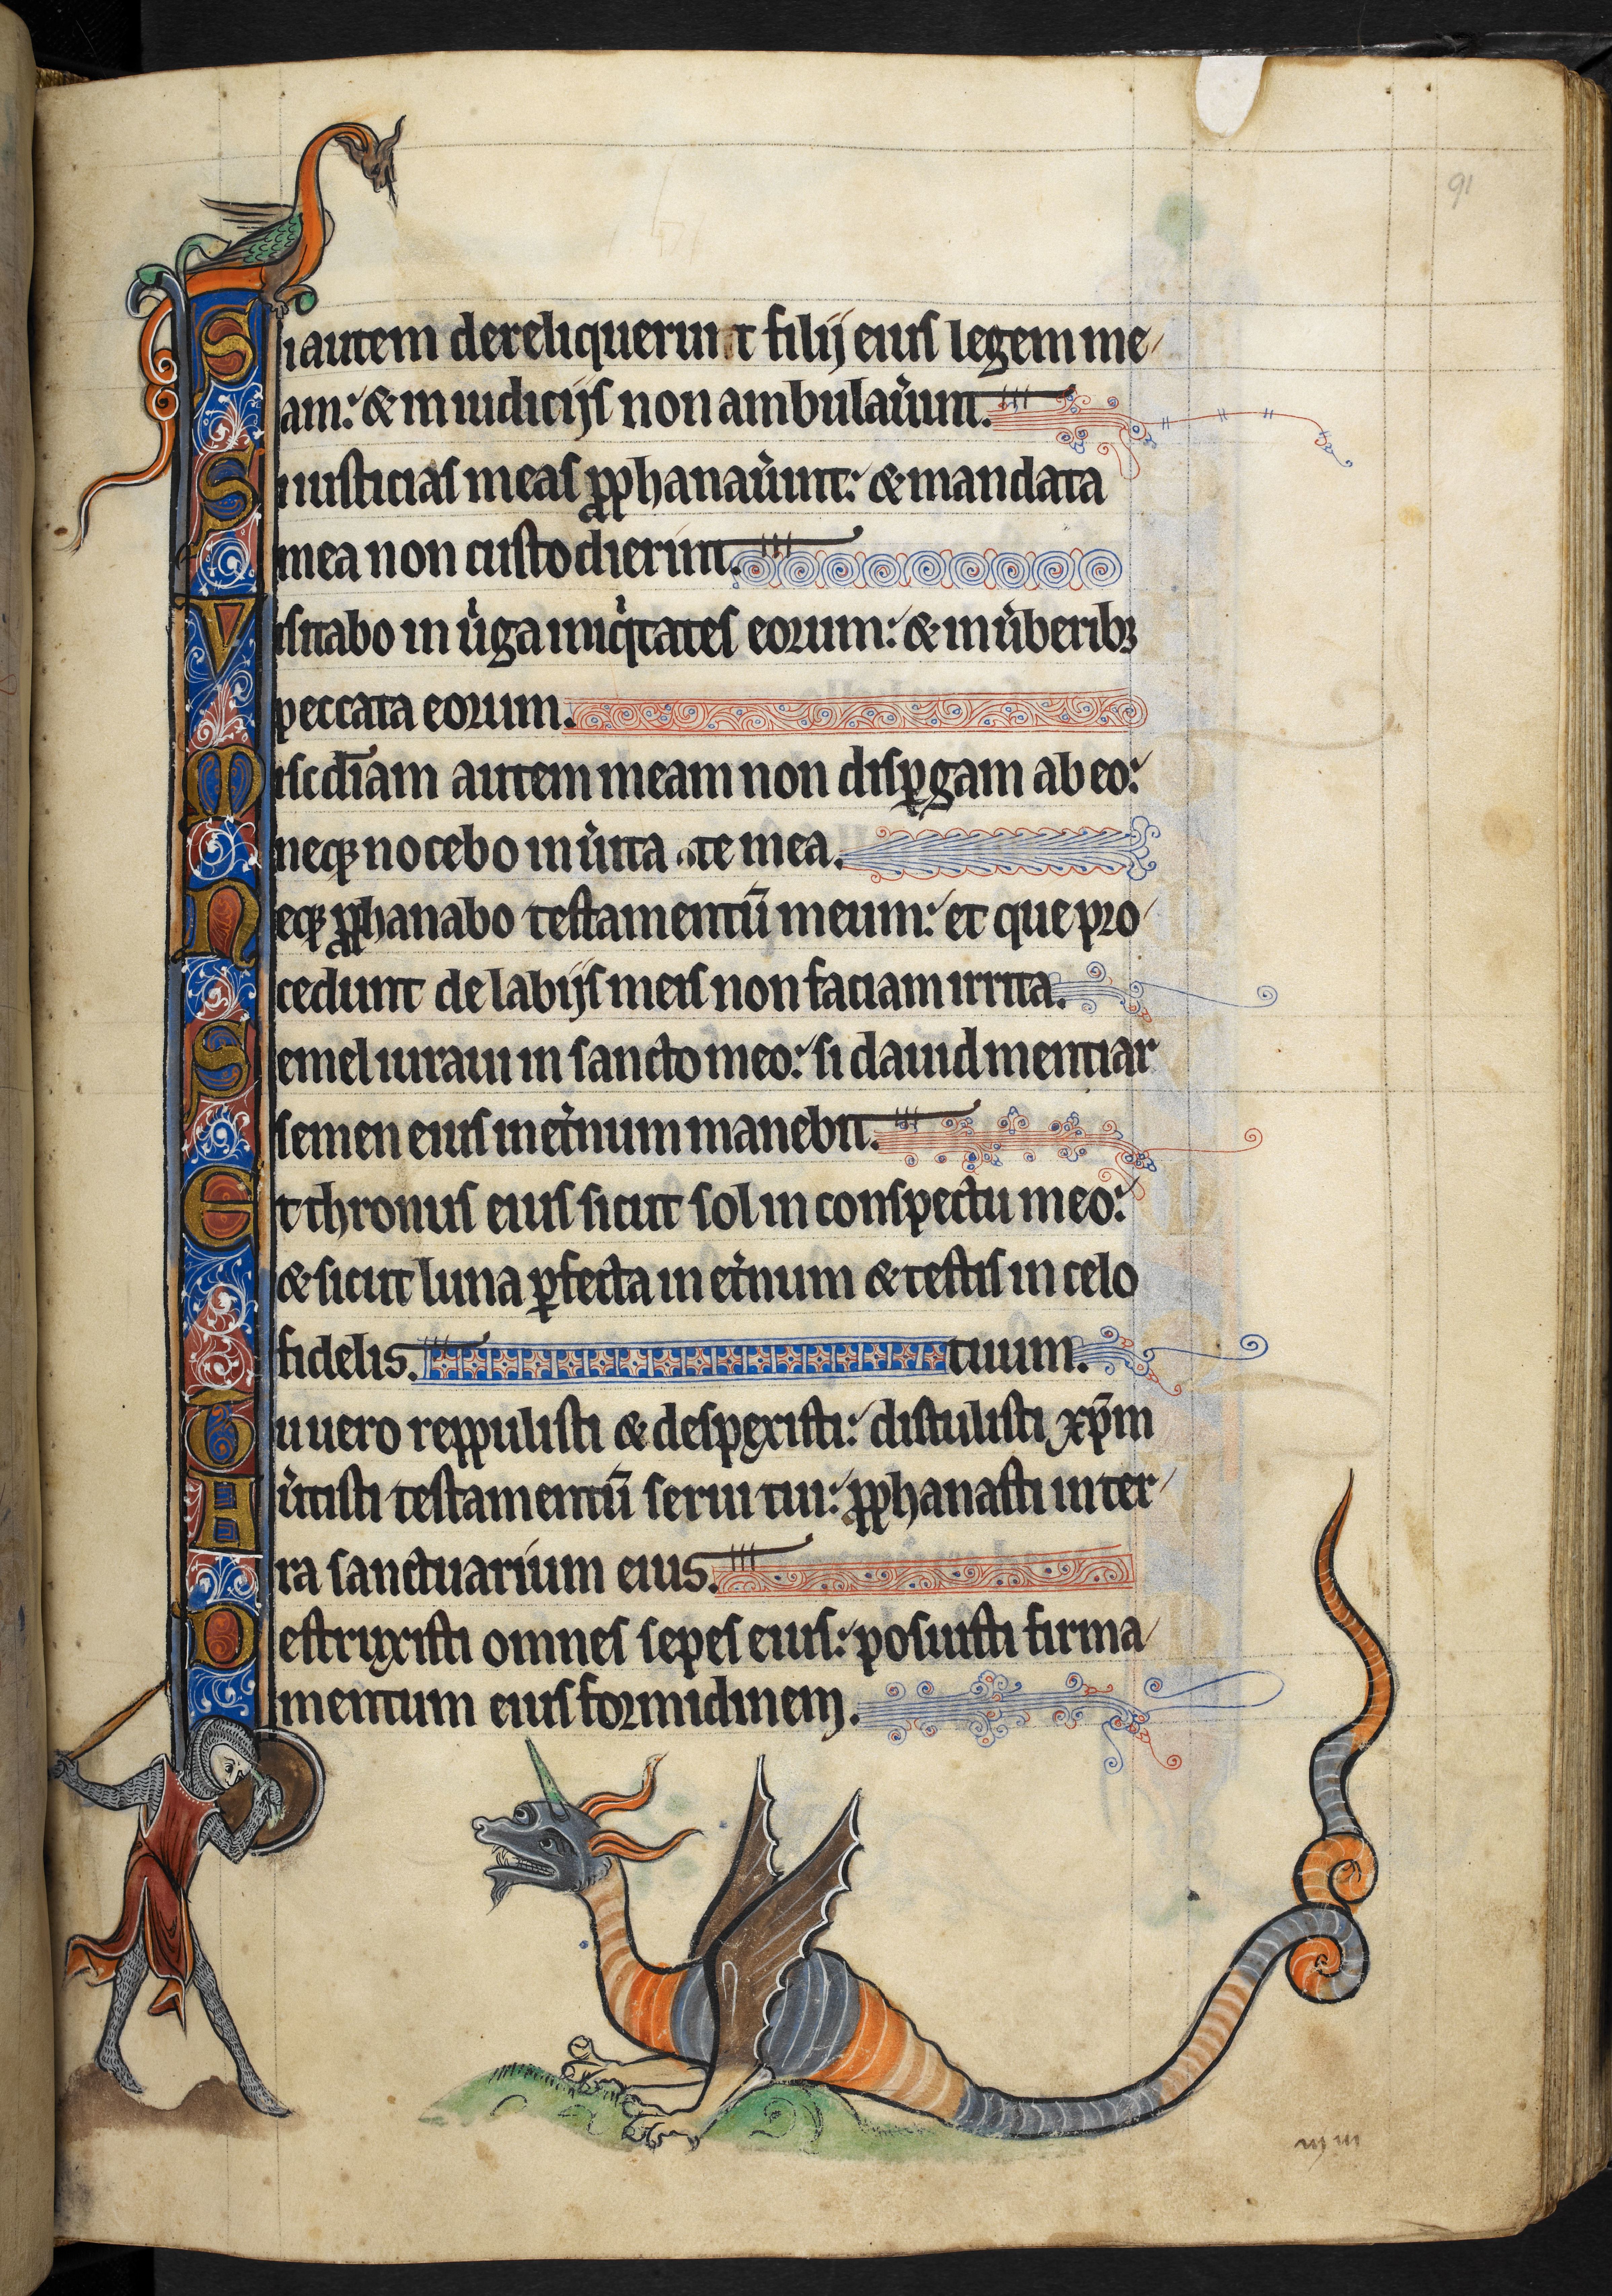 91
Si autem dereliquerint filij eius legem me
am: & in iudicijs non ambulau̾int.
Si iusticias meas ꝓphanau̾int: & mandata
mea non custodierint.
Visitabo in u̾ga iniqͥtates eorum: & in u̾beribꝫ
peccata eorum.
Misc̄diam autem meam non disꝑgam ab eo:
neqꝫ nocebo in u̾itate mea.
Neqꝫ ꝓphanabo testamentū meum: et que pro
cedunt de labijs meis non faciam irrita.
Semel iuraui in sancto meo: si dauid mentiar
semen eius in et̾num manebit.
Et thronus eius sicut sol in conspectu meo:
& sicut luna ꝑfecta in et̾num & testis in celo
fidelis. tuum.
Tu uero reppulisti & despexisti: distulisti xp̄m
Eu̾tisti testamentū serui tui: ꝓphanasti in ter
ra sanctuarium eius.
Destruxisti omnes sepes eius: posuisti firma
mentum eius formidinem.